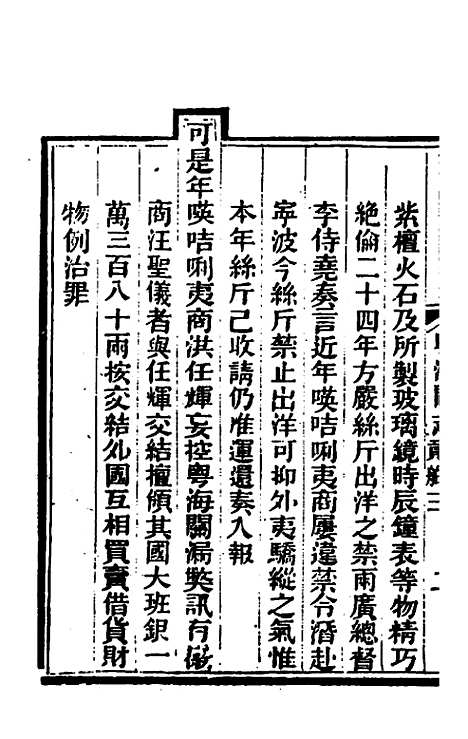 紫檀火石及所製玻璃鏡時辰鐘表等物精巧
絕倫二十四年方嚴絲斤出洋之禁兩廣總督
李侍堯奏言近年㗫咭唎夷商屢違禁令潛赴
寧波今絲斤禁止出洋可抑外夷驕縱之氣惟
本年絲斤已收請仍准運還奏入報
可是年㗫咭唎夷商洪任輝妄控粵海關漏獘訊有徽
商汪聖儀者與任輝交結擅領其國大班銀一
萬三百八十兩按交結外國互相買賣借貨財
物例治罪